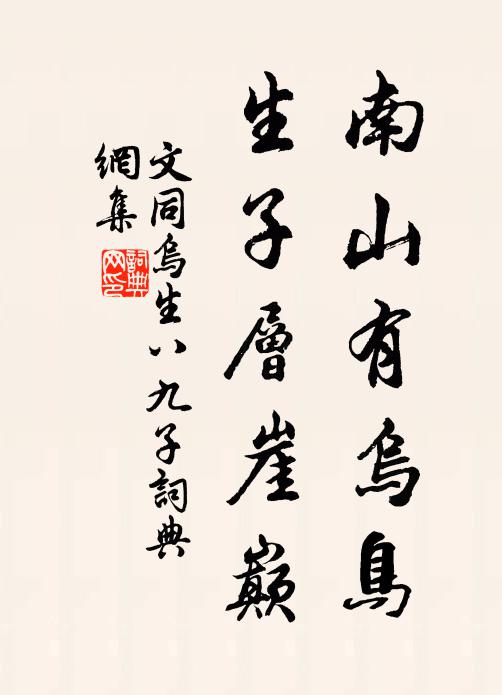 南山有烏鳥
生子層崖巔
文同烏生八九子詞典
網集
詞典
网印